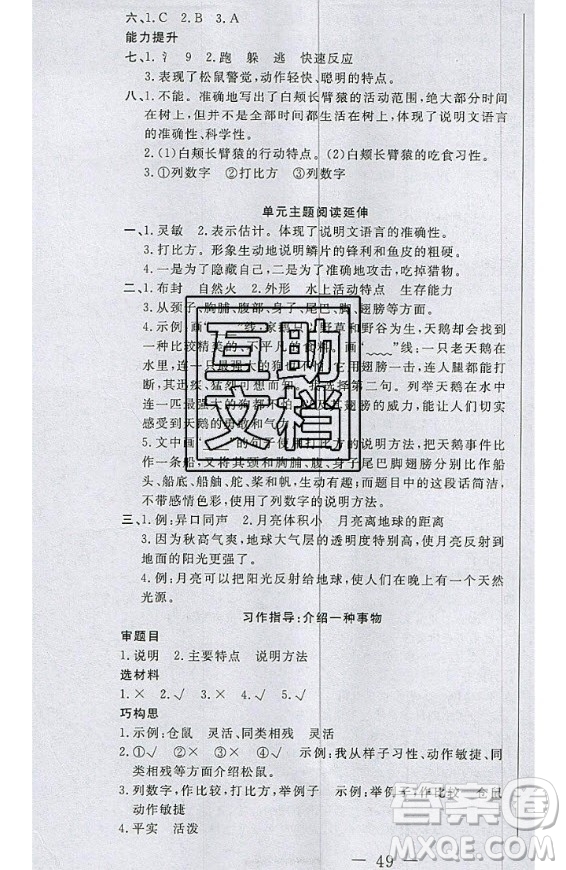 六、1.C 2.B 3.A
能力提升
七、1.氵 9 2.跑 躲 逃 快速反应
3.表现了松鼠警觉,动作轻快、聪明的特点。
八、1.不能。准确地写出了白颊长臂猿的活动范围,绝大部分时间
在树上,但并不是全部时间都生活在树上,体现了说明文语言
的准确性、科学性。
2.(1)白颊长臂猿的行动特点。(2)白颊长臂猿的吃食习性。
3.①列数字 ②打比方 ③列数字
单元主题阅读延伸
一、1.灵敏 2.表示估计。体现了说明文语言的准确性。
3.打比方。形象生动地说明鳞片的锋利和鱼皮的粗硬。
4.一是为了隐藏自己,二是为了准确地攻击,吃掉猎物。
二、1.布封 自然火 2.外形 水上活动特点 生存能力
3.从颈子、胸脯、腹部、身子、尾巴、脚、翅膀等方面。
4.示例:画“ ”线:家鹅只 野草和野谷为生,天鹅却找到了
一种比较精美的、不平凡的食料。画“﹏﹏”线:一只老天鹅在
水里,连一匹最强大的狗也不怕,它 翅膀一击,连人腿都能打
断,其迅疾、猛烈可想而知。我选择第二句。列举天鹅在水中
连一匹最强大的狗都不怕以及其翅膀的威力,让人们能更加切实
感受到天鹅的勇敢和气力。
5.文中画“ ”的句子使用打比方的说明方法,把天鹅事件比
作一条船,又将其颈和胸脯、腹部、身子尾巴脚翅膀分别比作船
头、船底、船舳、舵、桨和帆,生动、 ;而题目中的这段话简洁,
不带感情色彩,使用了列数字的说明方法。
三、1.例:异口同声 2.月亮体积小 月亮离地球的距离
3.因为秋高气爽,地球大气层的透明度特别高,月亮反射下来的
阳光更强了。
4.例:月亮可以把阳光反射给地球,使人们在晚上有一个天然
光源。
习作指导:介绍一种事物
审题目
1.说明 2.主要特点 说明方法
选材料
1.× 2.√ 3.× 4.√ 5.√
巧构思
1.示例:仓鼠 灵活、同类相残 灵活
2.①√ ②× ③× ④√ 示例:我从样子习性、动作敏捷、
同类相残等方面介绍松鼠。
3.列数字,作比较,打比方,举例子 示例:举例子,作比较 仓鼠
动作敏捷
4.平实 活泼
— 49 —
互助
文档
答案圈
MXQE.COM